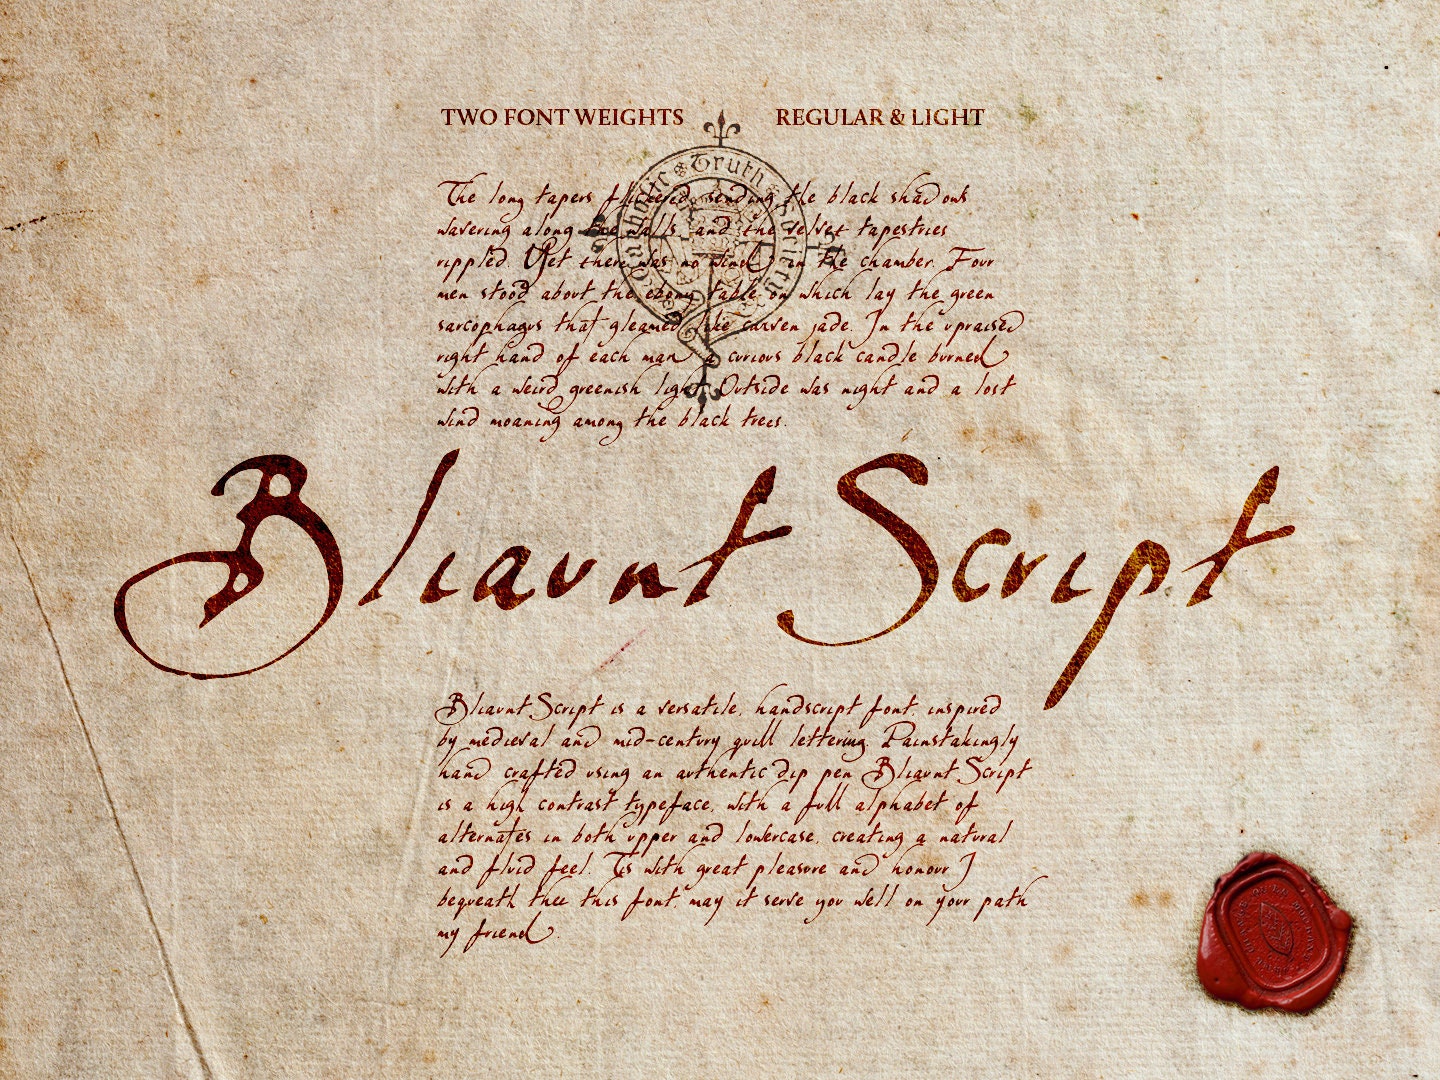 TWO FONT WEIGHTS REGULAR & LIGHT
Catholic Truth Society
The long tapers flickered, sending the black shadows
wavering along the walls, and the velvet tapestries
rippled. Yet there was no wind in the chamber. Four
men stood about the ebony table on which lay the green
sarcophagus that gleamed like carven jade. In the upraised
right hand of each man a curious black candle burned
with a weird greenish light. Outside was night and a lost
wind moaning among the black trees.
Bliaunt Script
Bliaunt Script is a versatile, handscript font, inspired
by medieval and mid-century quill lettering. Painstakingly
hand crafted using an authentic dip pen Bliaunt Script
is a high contrast typeface, with a full alphabet of
alternates in both upper and lowercase, creating a natural
and fluid feel. Tis with great pleasure and honour I
bequeath thee this font, may it serve you well on your path
my friend.